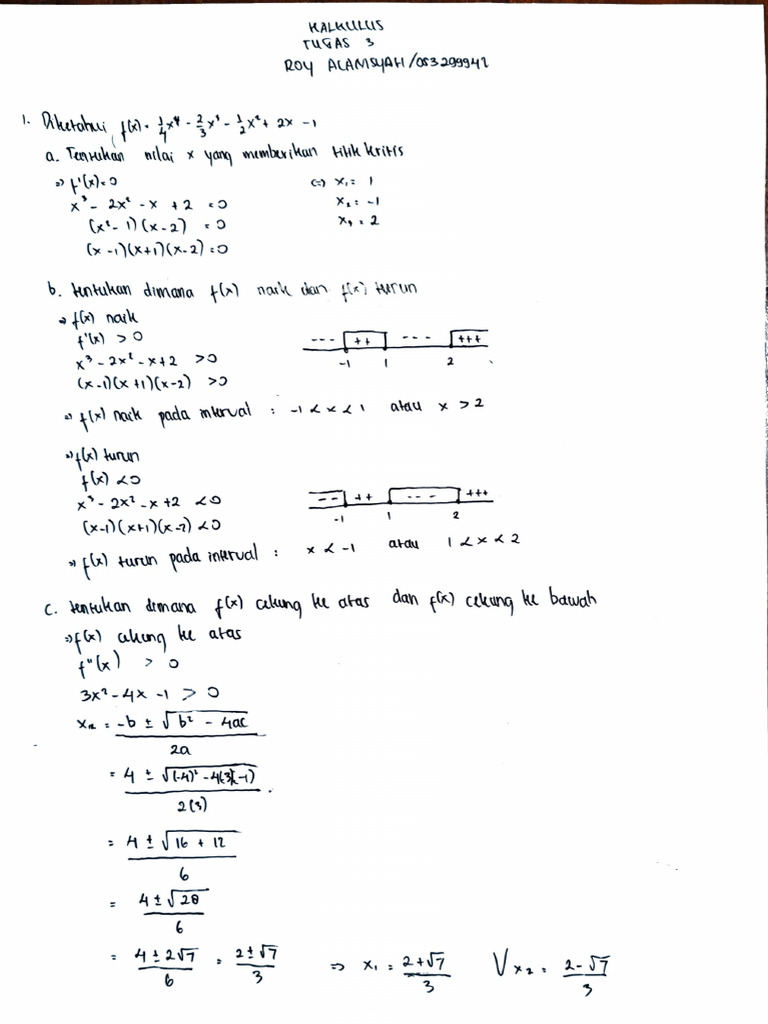 KALKULUS
TUGAS 3
ROY ALAMSYAH/053299942
1. Diketahui f(x) = 1/4 x⁴ - 2/3 x³ - 1/2 x² + 2x - 1
a. Tentukan nilai x yang memberikan titik kritis
⇒ f'(x) = 0
x³ - 2x² - x + 2 = 0
(x² - 1)(x - 2) = 0
(x - 1)(x + 1)(x - 2) = 0
(=) x₁ = 1
x₂ = -1
x₃ = 2
b. tentukan dimana f(x) naik dan f(x) turun
⇒ f(x) naik
f'(x) > 0
x³ - 2x² - x + 2 > 0
(x - 1)(x + 1)(x - 2) > 0
- - - ++ - - - +++
-1 1 2
⇒ f(x) naik pada interval : -1 < x < 1 atau x > 2
⇒ f(x) turun
f(x) < 0
x³ - 2x² - x + 2 < 0
(x-1)(x+1)(x-2) < 0
- - ++ - - - +++
-1 1 2
⇒ f(x) turun pada interval : x < -1 atau 1 < x < 2
c. tentukan dimana f(x) cekung ke atas dan f(x) cekung ke bawah
⇒ f(x) cekung ke atas
f"(x) > 0
3x² - 4x - 1 > 0
x₁₂ = (-b ± √(b² - 4ac)) / 2a
= (4 ± √((-4)² - 4(3)(-1))) / 2(3)
= (4 ± √(16 + 12)) / 6
= (4 ± √28) / 6
= (4 ± 2√7) / 6 = (2 ± √7) / 3 ⇒ x₁ = (2 + √7) / 3 V x₂ = (2 - √7) / 3